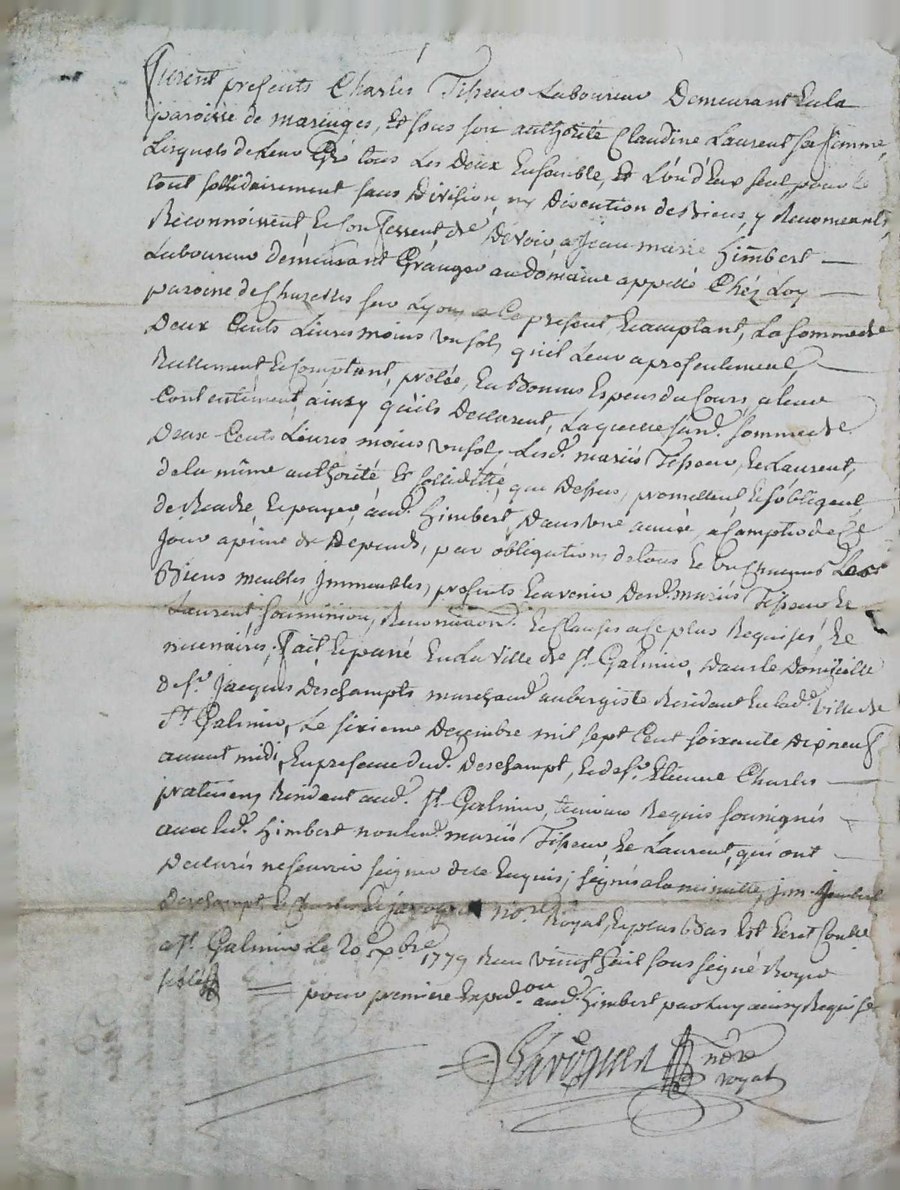 Furent presents Charles Tisseur Laboureur Demeurant En la
paroisse de maringes, Et sous son authorité Claudine Laurent sa femme,
Lesquels de Leur Gré tous Les Deux Ensemble, Et L'un d'Eux seul pour le
tout sollidairement sans Division, ny Discution de Biens, y Renonceants,
Reconnoissent Et Confessent, de Devoir a Jean marie himbert
Laboureur demeurant Granger au domaine appellé Chéz Loy
paroisse de Chazelles sur Lyon a Ce present Et acceptant, La Somme de
Deux Cents Livres moins un sol, qu'il Leur a presentement,
Reellement Et Comptant, prétée, En Bonnes Especes du Cours, a leur
Contentement, ainsy qu'ils Declarent, Laquelle susd. Somme de
Deux Cents Livres moins un sol, Lesd. mariés Tisseur, Et Laurent,
de la même authorité Et sollidité, que Dessus, promettent Et s'obligent
de Rendre Et payer, aud. himbert, Dans une année, a Compter de Ce
Jour a peine de Depends, par obligation de tous Et un Chacuns Leurs
Biens meubles Immeubles, presents Et avenir Desd. mariés Tisseur Et
Laurent, soumission, Renonciaon. Et Clauses a Ce plus Requises Et
necessaires, Fait Et passé En La Ville de St. Galmier, Dans le Domicille
de Sr. Jacques Deschampts marchand aubergiste Resident En lad. Ville de
St. Galmier, Le sixieme Decembre mil sept Cent soixante Dix neuf
avant midi, En presence dud. Deschampt, Et de sr. Etienne Charles
praticien Resident aud. St. Galmier, temoins Requis soussignés
avec led. himbert non lesd. mariés Tisseur Et Laurent, qui ont
Declarés ne scavoir signer de ce Enquis; signés a la minutte, j.m. himbert
Deschampt Et Charles Et notre Royal, Et plus Bas Est Ecrit Controllé
a St. Galmier Le 20. xbre 1779 Reçu vingt huit sous signé
pour premiere Expedon. aud. himbert par luy ainsy Requise
nore
royal